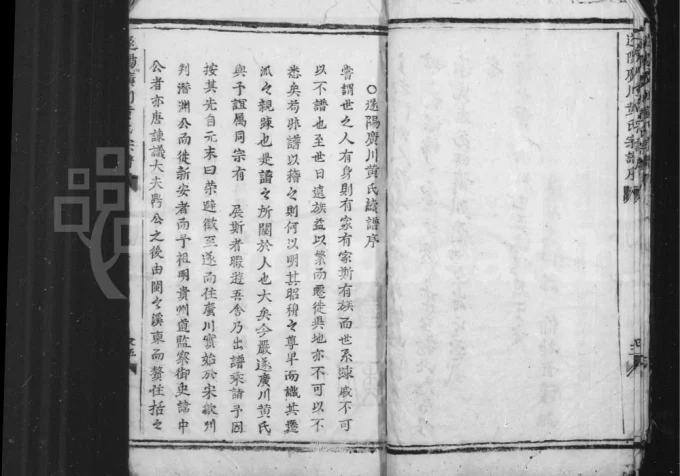 遂陽廣川黃氏宗譜序
○遂陽廣川黃氏譜序
嘗謂世之人有身則有家有家斯有族而世系踈戚不可
以不譜也至世日遠族益以繁而遷徙異地亦不可以不
悉矣苟非譜以稽之則何以明其昭穆之尊卑而識其遷
派之親踈也是譜之所關於人也大矣今嚴遂廣川黃氏
與予誼屬同宗有 展斯者暇遊吾舍乃出譜乘請予因
按其先自元末曰榮避徽至遂而住廣川實始於宋歙州
判潛淵公而徙新安者而予祖明貴州道監察御史諱中
公者亦唐諫議大夫公之後由閩之溪東而贅住括之